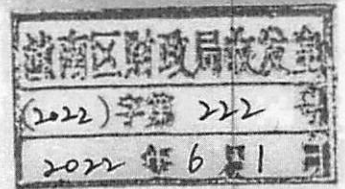 潼南区财政局收发室
(2022)字第 222 号
2022 年 6 月 1 日